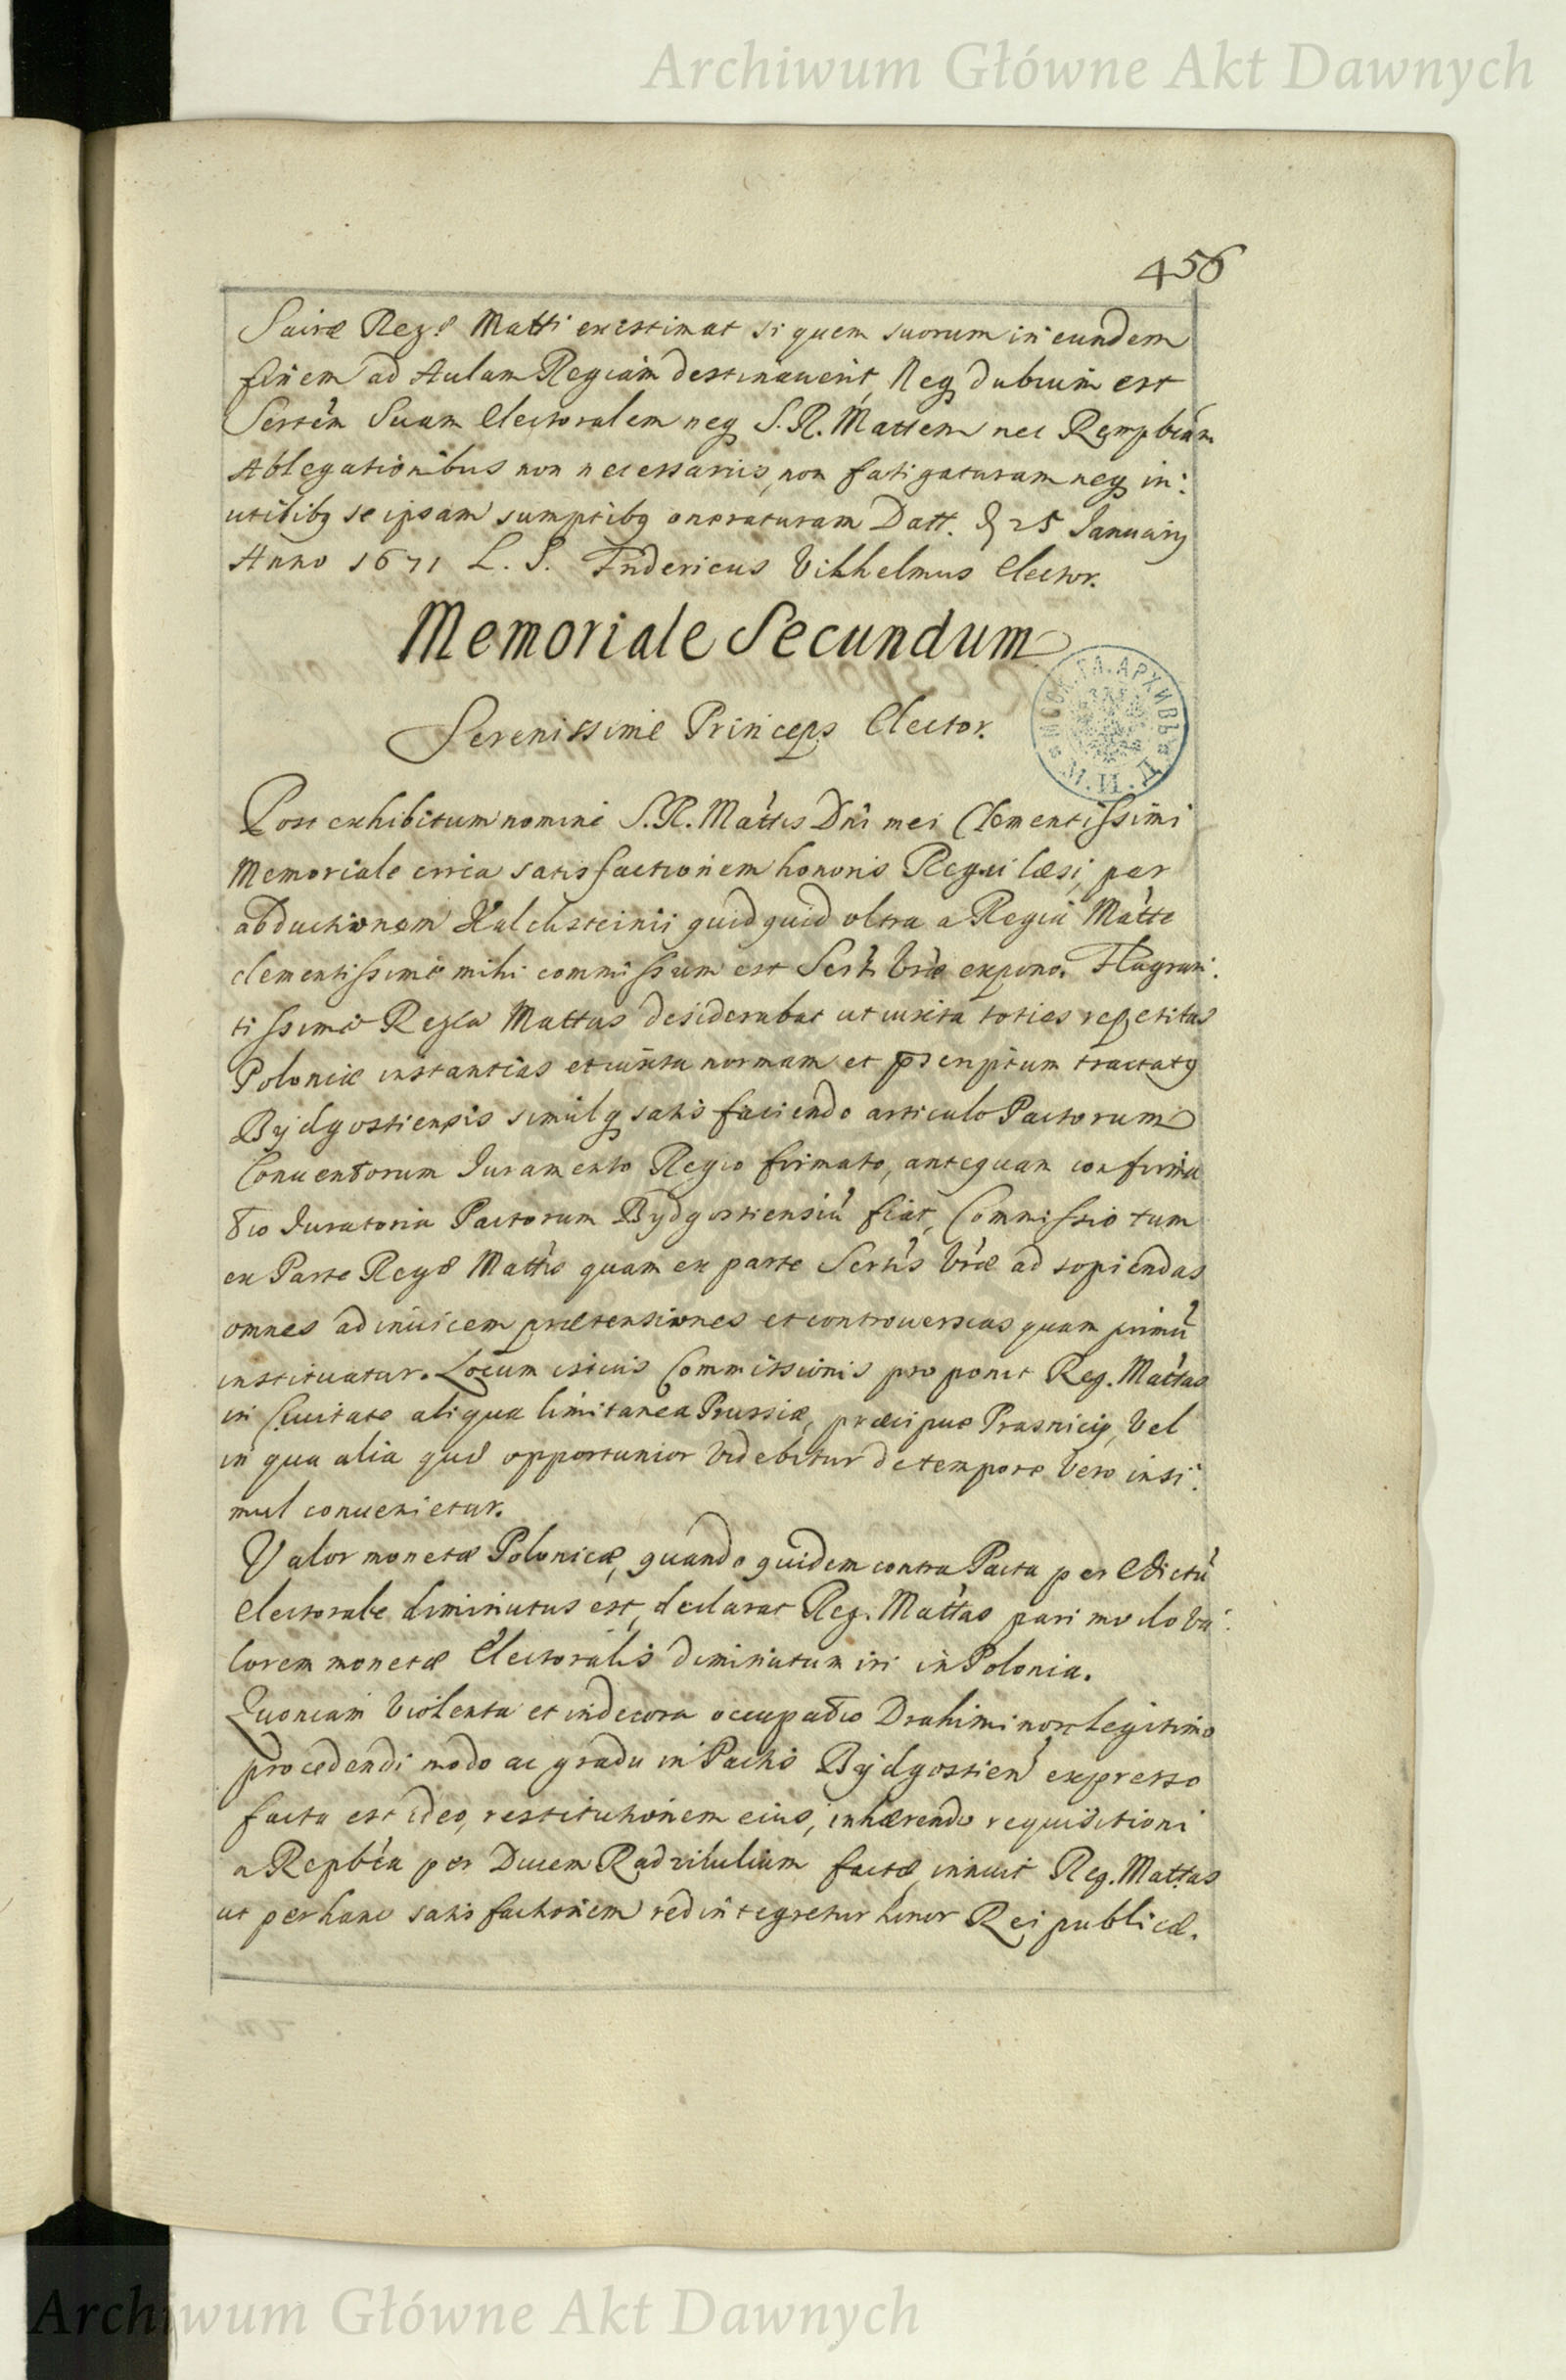 Archiwum Główne Akt Dawnych
456
Sacræ Regæ Matti existimat si quem suorum in eundem
finem ad Aulam Regiam destinauerit, Neq dubium est
Serttm Suam Electoralem neq S. R. Mattem nec Rempbcam
Ablegationibus non necessariis, non fatigaturam neq in:
utilibq se ipsam sumptibq oneraturam Datt. D 25 January
Anno 1671 L. S. Fridericus Vilhelmus Elector.
Memoriale Secundum
Serenissime Princeps Elector.
Post exhibitum nomine S. R. Mattis Dni mei Clementissimi
Memoriale circa satisfactionem honoris Regii læsi, per
abductionem Kalchsteinii quidquid vltra a Regia Matte
clementissime mihi commissum est Serti Vræ expono. Flagran:
tissime Regia Mattas desiderabat ut iuxta toties repetitas
Poloniæ instantias et iuxta normam et pscriptum tractatq
Bydgostiensis simulq satisfaciendo articulo Pactorum
Conuentorum Iuramento Regio firmato, antequam confirma
tio Iuratoria Pactorum Bydgostiensiu fiat, Commissio tum
ex Parte Regæ Mattis quam ex parte Sertis Vræ ad sopiendas
omnes adinuicem prætensiones et controuersias quam primu
instituatur. Locum istius Commissionis proponit Reg. Mattas
in Ciuitate aliqua limitanea Prussiæ, præcipue Prasnicij, Vel
in qua alia quæ opportunior Videbitur de tempore Vero insi:
mul conuenietur.
Valor monetæ Polonicæ, quando quidem contra Pacta per Edictu
Electorale diminutus est, declarat Reg. Mattas pari modo va:
lorem monetæ Electoralis diminutum iri in Polonia.
Quoniam Violenta et indecora occupatio Drahimi non legitimo
procedendi modo ac gradu in Pactis Bydgostien expresso
facta est ideo, restitutionem eius, inhærendo requisitioni
a Repbca per Ducem Radziuilium factæ, innuit Reg. Mattas
ut per hanc satisfactionem redintegretur honor Reipublicæ.
Archiwum Główne Akt Dawnych